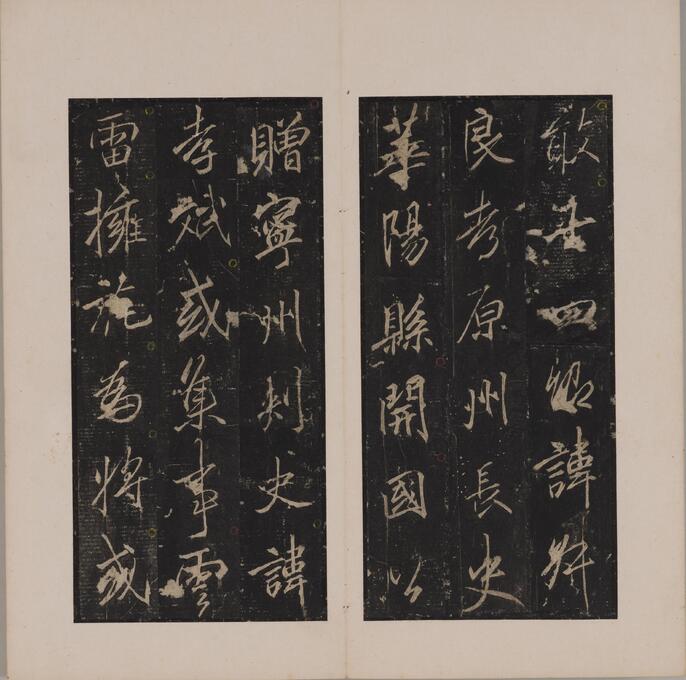 四諱叔
良考原州長史
華陽縣開國公
贈寧州刺史諱
孝斌或集事雲
雷擁旄為將或